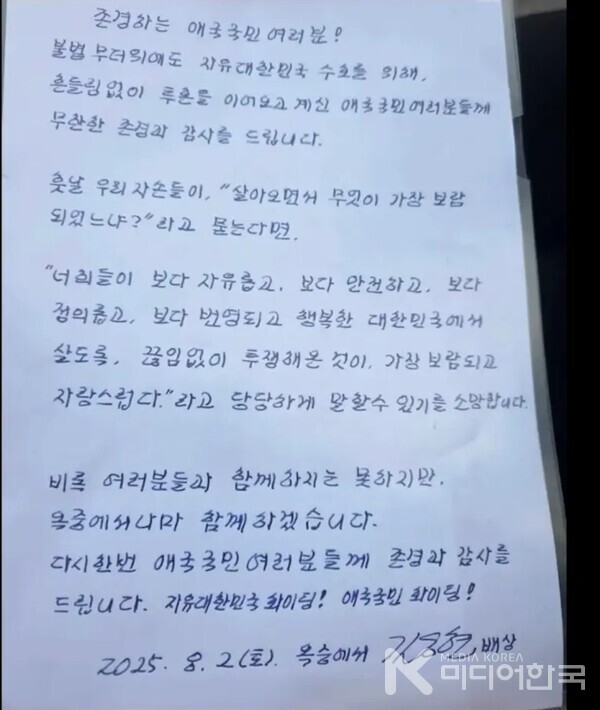 존경하는 애국국민 여러분!
불법 무더위에도 자유대한민국 수호를 위해,
흔들림없이 투혼을 이어오고 계신 애국국민여러분들께
무한한 존경과 감사를 드립니다.
훗날 우리 자손들이, "살아오면서 무엇이 가장 보람
되었느냐?"라고 묻는다면,
"너희들이 보다 자유롭고, 보다 안전하고, 보다
정의롭고, 보다 번영되고 행복한 대한민국에서
살도록, 끊임없이 투쟁해온 것이, 가장 보람되고
자랑스럽다."라고 당당하게 말할수 있기를 소망합니다.
비록 여러분들과 함께하지는 못하지만,
옥중에서나마 함께하겠습니다.
다시한번 애국국민여러분들께 존경과 감사를
드립니다. 자유대한민국 화이팅! 애국국민 화이팅!
2025. 8. 2(토). 옥중에서 김용현, 배상
MEDIA KOREA
미디어한국